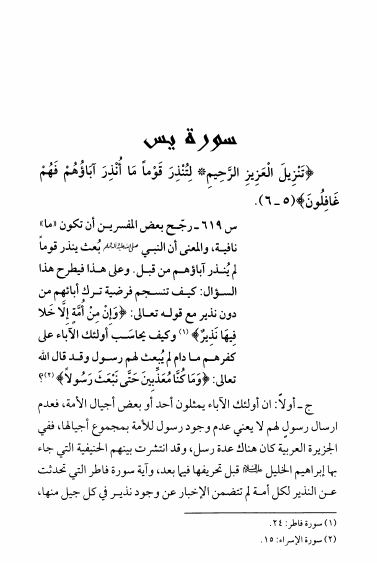 سورة يس
﴿تَنْزِيلَ الْعَزِيزِ الرَّحِيمِ* لِتُنْذِرَ قَوْماً مَا أُنْذِرَ آبَاؤُهُمْ فَهُمْ
غَافِلُونَ﴾(٥ ـ ٦).
س ٦١٩ ـ رجّح بعض المفسرين أن تكون «ما»
نافية، والمعنى أن النبي بُعث ينذر قوماً
لم يُنذر آباؤهم من قبل. وعلى هذا فيطرح هذا
السؤال: كيف تنسجم فرضية ترك أبائهم من
دون نذير مع قوله تعالى: ﴿وَإِنْ مِنْ أُمَّةٍ إِلَّا خَلَا
فِيهَا نَذِيرٌ﴾(١) وكيف يحاسَب أولئك الآباء على
كفرهم ما دام لم يُبعث لهم رسول وقد قال الله
تعالى: ﴿وَمَا كُنَّا مُعَذِّبِينَ حَتَّى نَبْعَثَ رَسُولاً﴾(٢)؟
ج ـ أولاً: ان أولئك الآباء يمثلون أحد أو بعض أجيال الأمة، فعدم
ارسال رسولٍ لهم لا يعني عدم وجود رسول للأمة بمجموع أجيالها، ففي
الجزيرة العربية كان هناك عدة رسل، وقد انتشرت بينهم الحنيفية التي جاء
بها إبراهيم الخليل قبل تحريفها فيما بعد، وآية سورة فاطر التي تحدثت
عن النذير لكل أمة لم تتضمن الإخبار عن وجود نذير في كل جيل منها،
(١) سورة فاطر: ٢٤.
(٢) سورة الإسراء: ١٥.